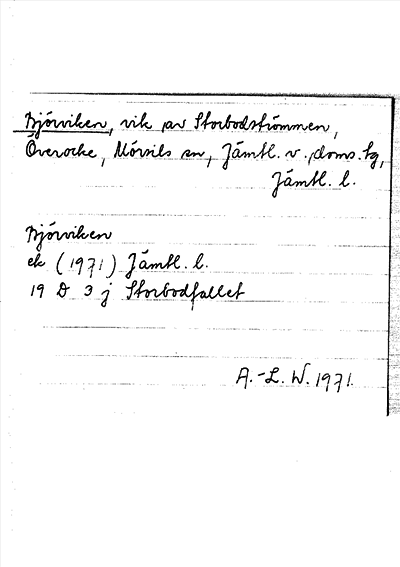 Björviken, vik av Storbodströmmen,
Överocke, Mörsils sn, Jämtl. v. doms. tg,
Jämtl. l.
Björviken
ek (1971) Jämtl. l.
19 D 3 j Storbodfallet
A.-L. W. 1971.